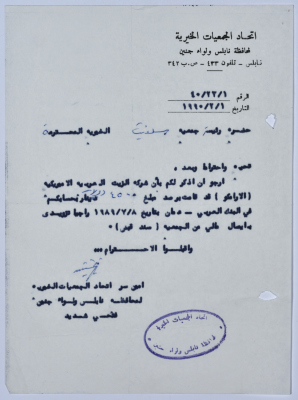 اتحاد الجمعيات الخيرية
لمحافظة نابلس ولواء جنين
نابلس - تلفون ٤٣٣ - ص.ب ٣٤٢
الرقم ٤٠/٢٢/١
التاريخ ١٩٩٠/٢/١
حضرة رئيسة جمعية سلفيت الخيرية المحترمة
تحية واحتراما وبعد ،
ارجو ان اذكر لكم بأن شركة الزيت العربية الامريكية
(الارامكو) قد قامت برصد مبلغ ٤٥٠٠ دينار بحسابكم
في البنك العربي - عمان بتاريخ ١٩٨٩/٧/٨ راجيا تزويدي
بايصال مالي من الجمعية ( سند قبض ) ٠
واقبلوا الاحترام ،،،
امين سر اتحاد الجمعيات الخيرية
لمحافظة نابلس ولواء جنين
اتحاد الجمعيات الخيرية
محافظة نابلس ولواء جنين